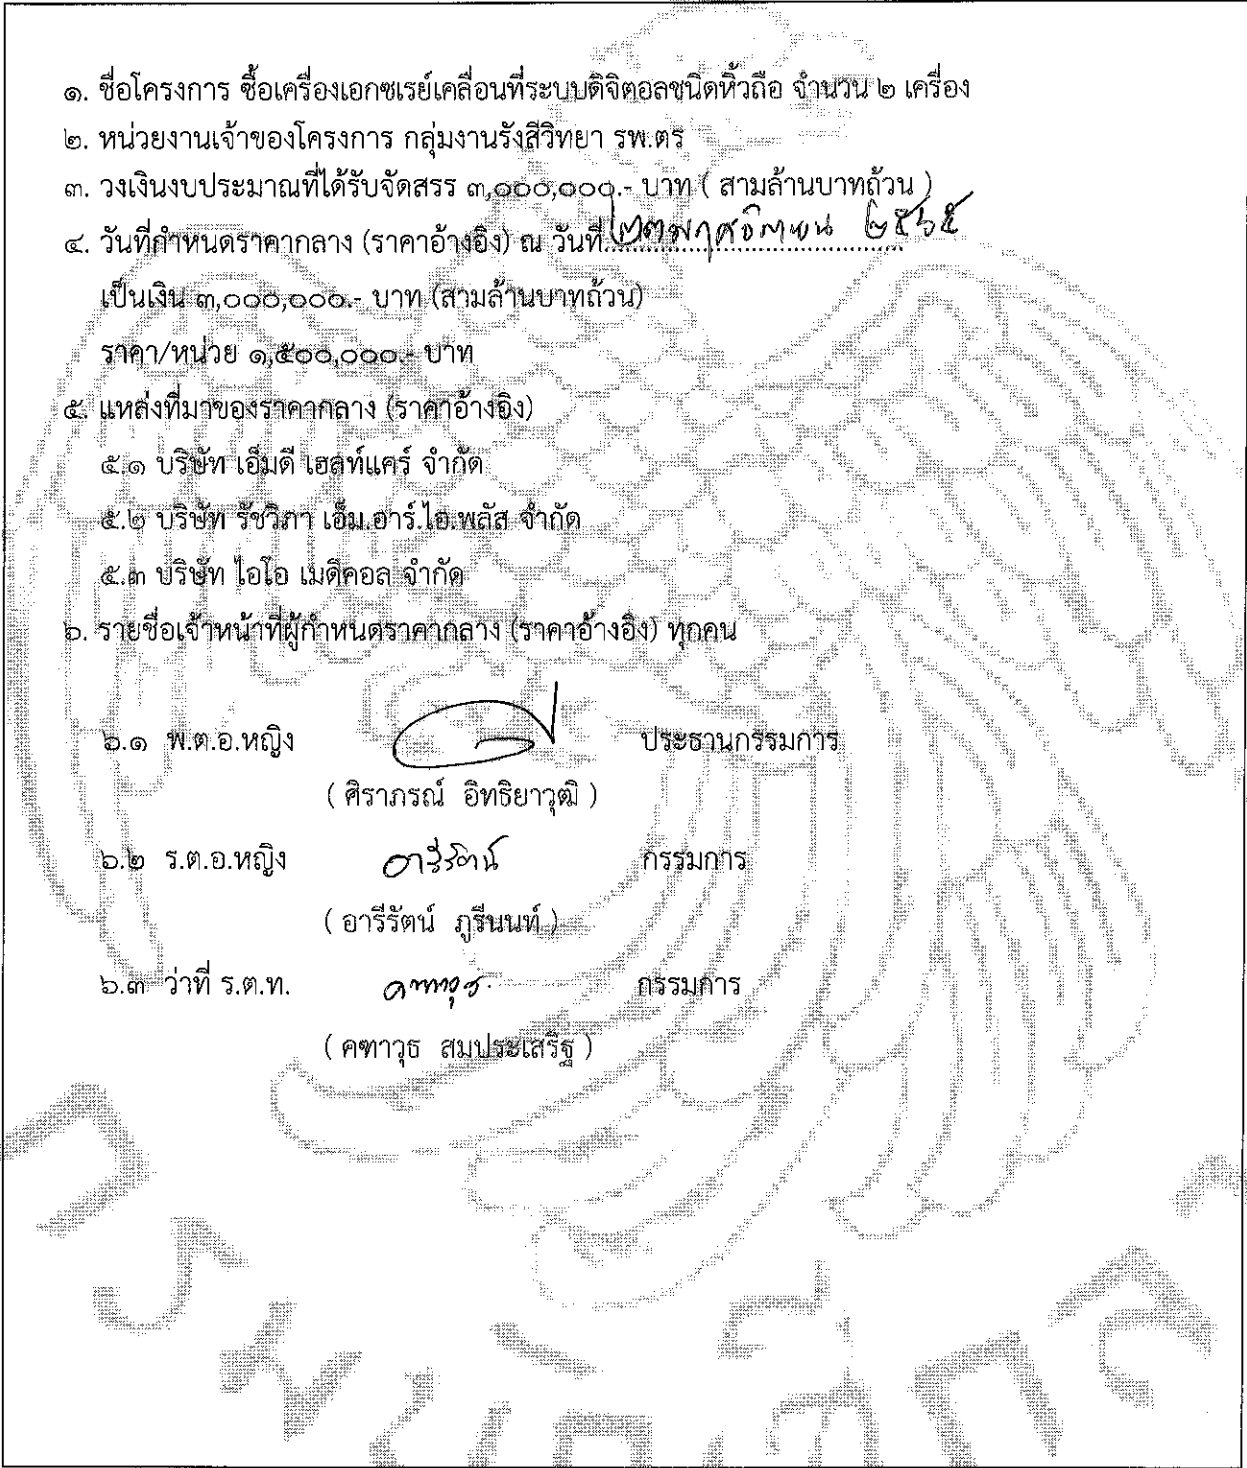 ๑. ชื่อโครงการ ซื้อเครื่องเอกซเรย์เคลื่อนที่ระบบดิจิตอลชนิดหิ้วถือ จำนวน ๒ เครื่อง
๒. หน่วยงานเจ้าของโครงการ กลุ่มงานรังสีวิทยา รพ.ตร
๓. วงเงินงบประมาณที่ได้รับจัดสรร ๓,๐๐๐,๐๐๐.- บาท ( สามล้านบาทถ้วน )
๔. วันที่กำหนดราคากลาง (ราคาอ้างอิง) ณ วันที่ ๒๓ พฤศจิกายน ๒๕๖๕
เป็นเงิน ๓,๐๐๐,๐๐๐.- บาท (สามล้านบาทถ้วน)
ราคา/หน่วย ๑,๕๐๐,๐๐๐.- บาท
๕. แหล่งที่มาของราคากลาง (ราคาอ้างอิง)
๕.๑ บริษัท เอ็มดี เฮลท์แคร์ จำกัด
๕.๒ บริษัท รัชวิภา เอ็ม.อาร์.ไอ.พลัส จำกัด
๕.๓ บริษัท ไอโอ เมดิคอล จำกัด
๖. รายชื่อเจ้าหน้าที่ผู้กำหนดราคากลาง (ราคาอ้างอิง) ทุกคน
๖.๑ พ.ต.อ.หญิง ประธานกรรมการ
( ศิราภรณ์ อิทธิยาวุฒิ )
๖.๒ ร.ต.อ.หญิง อารีรัตน์ กรรมการ
( อารีรัตน์ ภูรีนนท์ )
๖.๓ ว่าที่ ร.ต.ท. คฑาวุธ กรรมการ
( คฑาวุธ สมประเสริฐ )